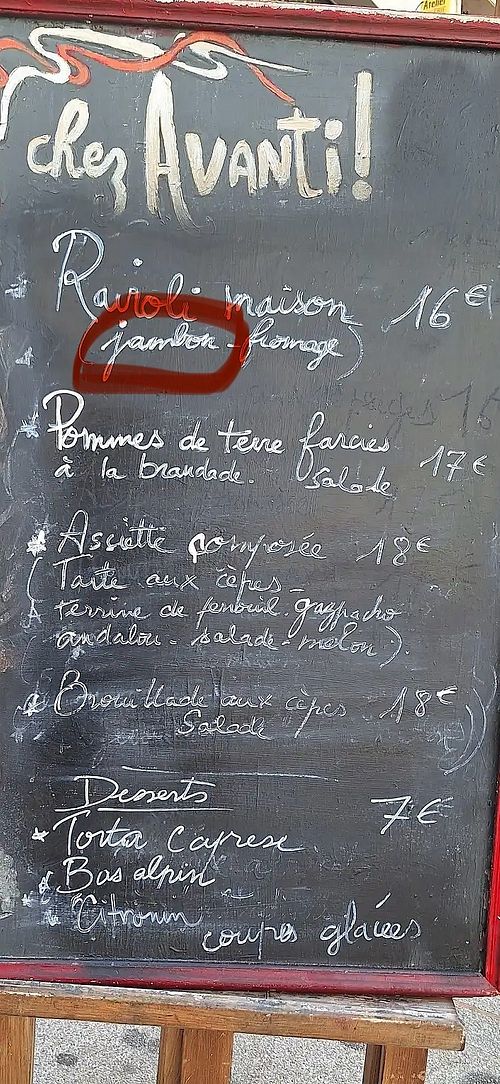 chez AVANTi!
Ravioli maison 16€
(jambon-fromage)
Pommes de terre farcies 17€
à la brandade. Salade
Assiette composée 18€
(Tarte aux cèpes-
terrine de fenouil. gazpacho
andalou-salade-melon).
Brouillade aux cèpes 18€
Salade
Desserts 7€
Torta Caprese
Bas alpin
coupes glacées